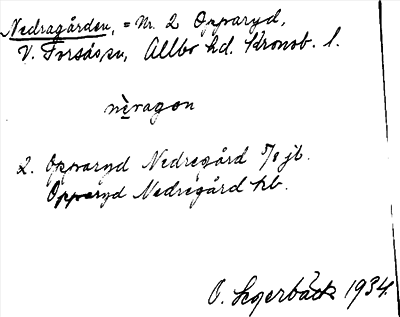 Nedragården, = Nr. 2 Opparyd,
V. Torsås sn, Allbo hd. Kronob. l.
nèragon
2. Opparyd Nedregård 7/8 jb.
Opparyd Nedregård kb.
O. Segerbäck 1934.